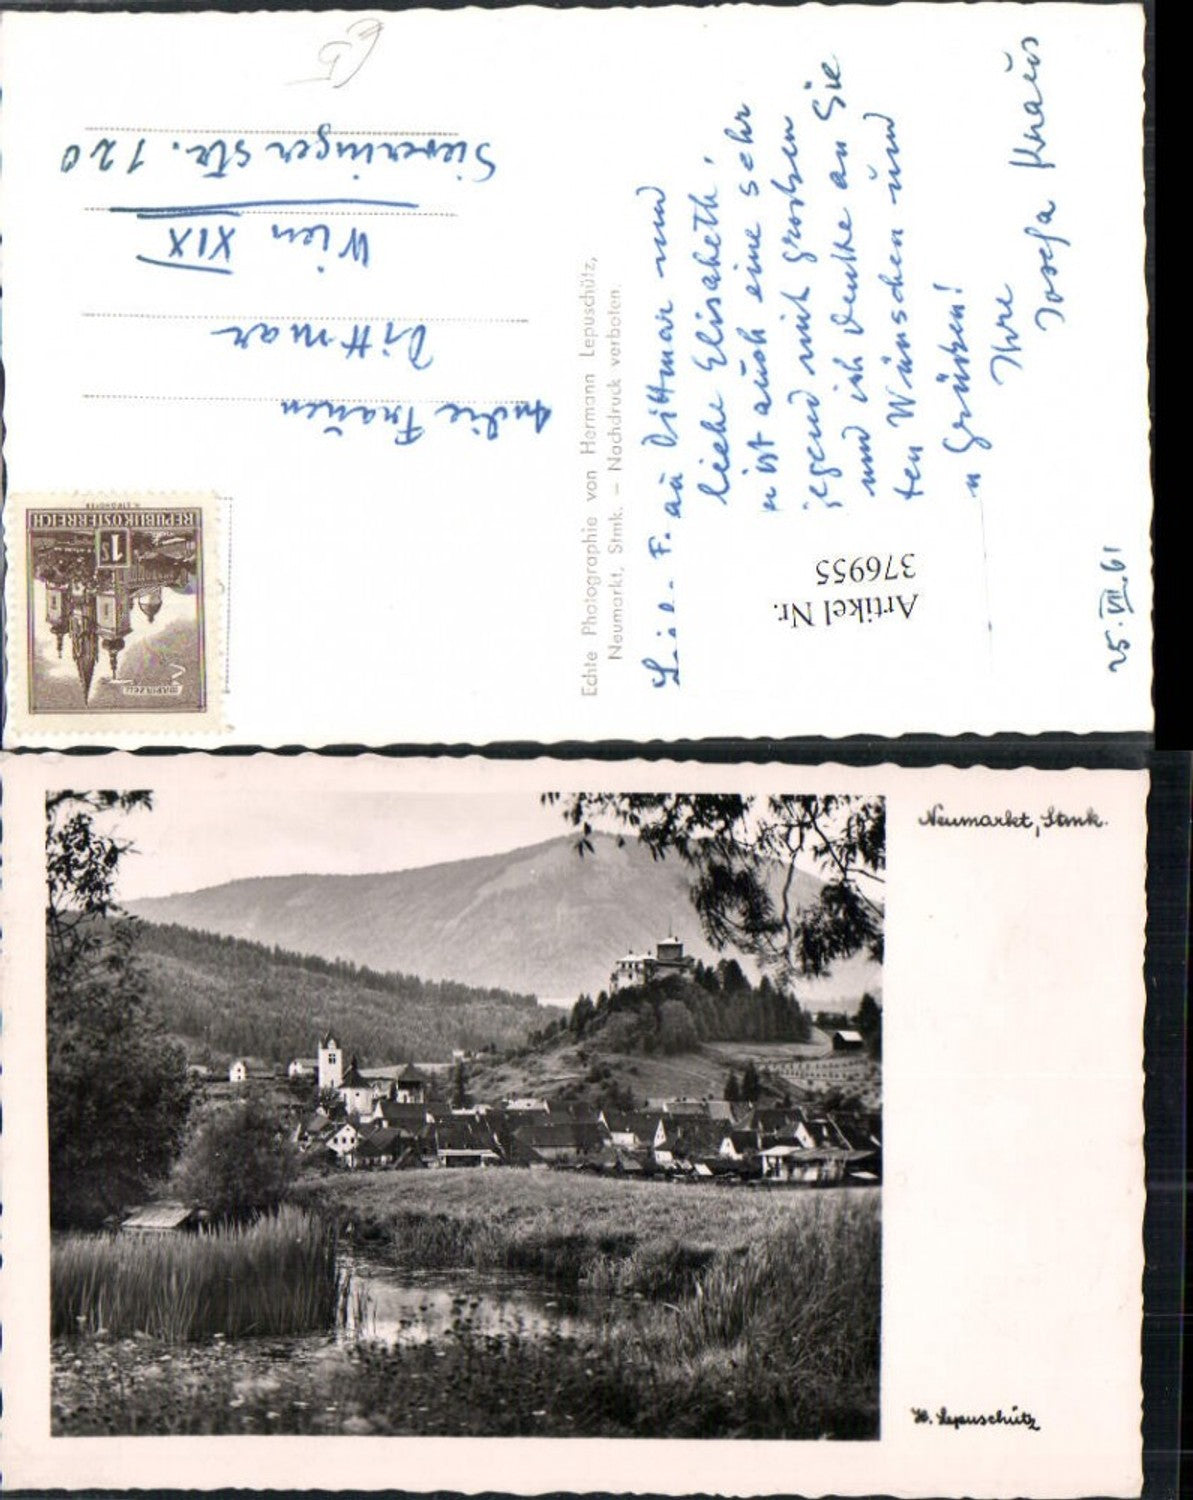 An die Frauen
Dittmar
Wien XIX
Sieveringer Str. 120
REPUBLIK ÖSTERREICH
1 S
MARIAZELL
Echte Photographie von Hermann Lepuschütz,
Neumarkt, Stmk. – Nachdruck verboten.
F. au Dittmar und
liebe Elisabeth!
ist auch eine sehr
gegend mit grossen
und ich denke an Sie
ten Wünschen und
n Grüssen!
Ihre
Josefa Knaus
25. VII. 61
Artikel Nr.
376955
Neumarkt, Stmk.
H. Lepuschütz